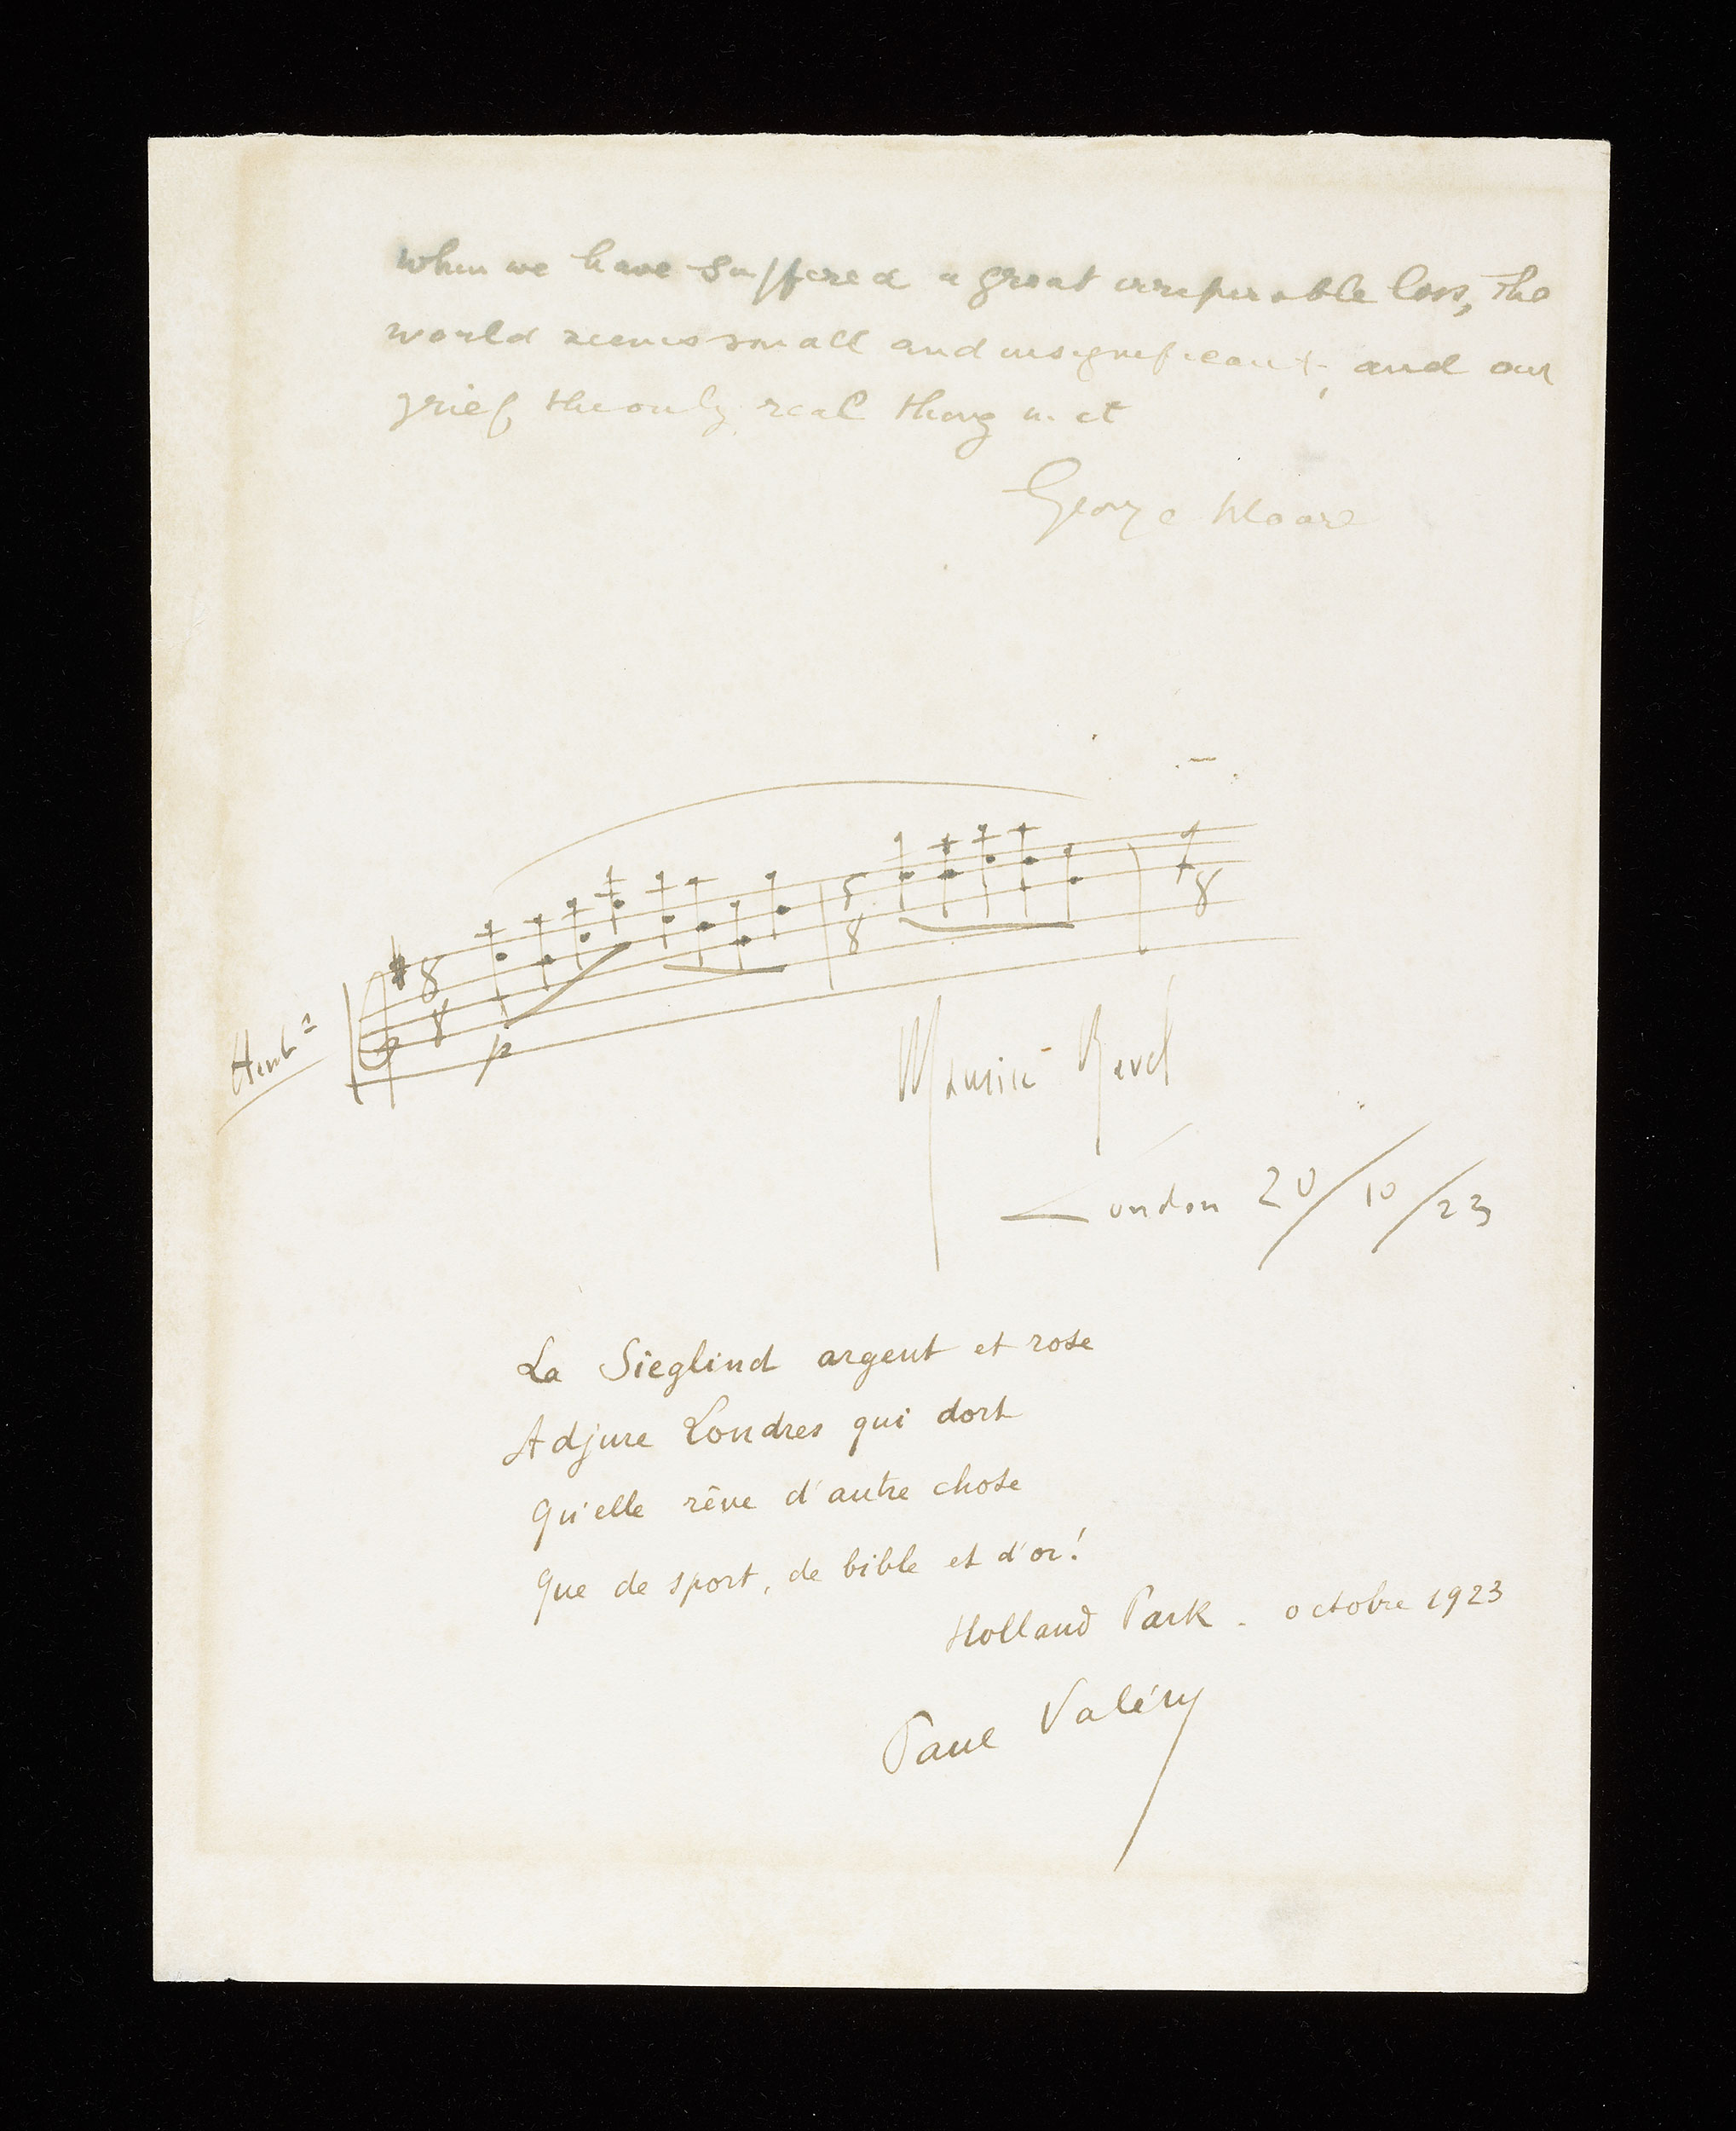 When we have suffered a great irreparable loss, the
world seems small and insignificant, and our
grief the only real thing in it
George Moore
Hautb.
8
8
p
5
8
8
Maurice Ravel
London 20/10/23
La Sieglind argent et rose
Adjure Londres qui dort
Qu'elle rêve d'autre chose
Que de sport, de bible et d'or!
Holland Park - octobre 1923
Paul Valéry